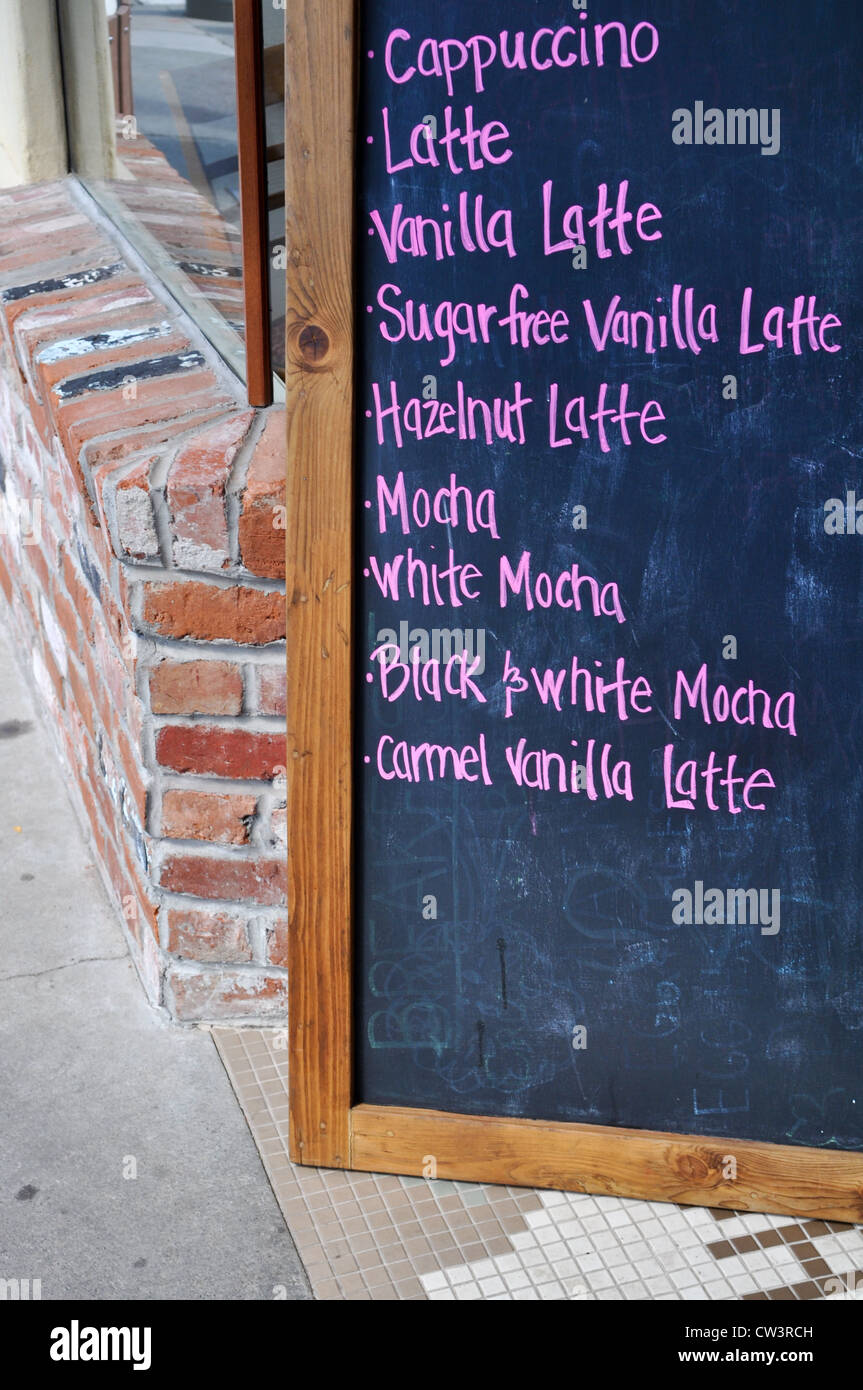 · Cappuccino
· Latte
· Vanilla Latte
· Sugar free Vanilla Latte
· Hazelnut Latte
· Mocha
· White Mocha
· Black & White Mocha
· Carmel Vanilla Latte
BREAKFAST
EGG
alamy
Image ID: CW3RCH
www.alamy.com